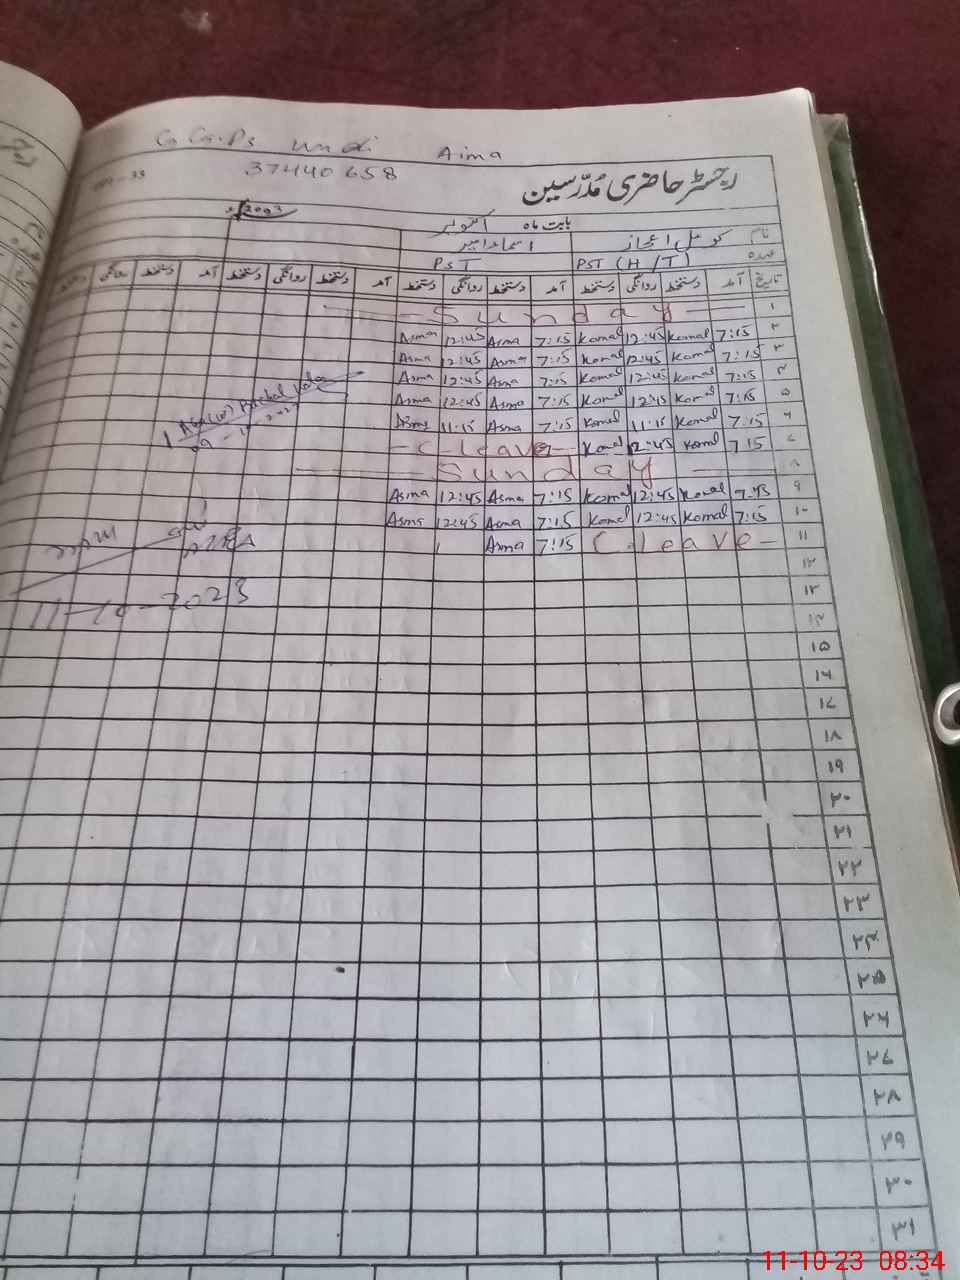 Aima
37440658
رجسٹر حاضری مُدرّسین
بابت ماہ اکتوبر
نام کومل اعجاز
عہدہ PST (H/T) PST
تاریخ آمد دستخط روانگی دستخط آمد دستخط روانگی دستخط آمد دستخط روانگی دستخط آمد دستخط روانگی
۱ Sunday
۲ 7:15 Komal 12:45 Komal 7:15 Asma 12:45 Asma
۳ 7:15 Komal 12:45 Komal 7:15 Asma 12:45 Asma
۴ 7:15 Komal 12:45 Komal 7:15 Asma 12:45 Asma
۵ 7:15 Komal 12:45 Komal 7:15 Asma 12:45 Asma
۶ 7:15 Komal 11:15 Komal 7:15 Asma 11:15 Asma
۷ 7:15 Komal 12:45 Komal C-leave
۸ Sunday
۹ 7:15 Komal 12:45 Komal 7:15 Asma 12:45 Asma
۱۰ 7:15 Komal 12:45 Komal 7:15 Asma 12:45 Asma
۱۱ C.Leave 7:15 Asma
11-10-2023
۱۲
۱۳
۱۴
۱۵
۱۶
۱۷
۱۸
۱۹
۲۰
۲۱
۲۲
۲۳
۲۴
۲۵
۲۶
۲۷
۲۸
۲۹
۳۰
۳۱
11-10-23 08:34